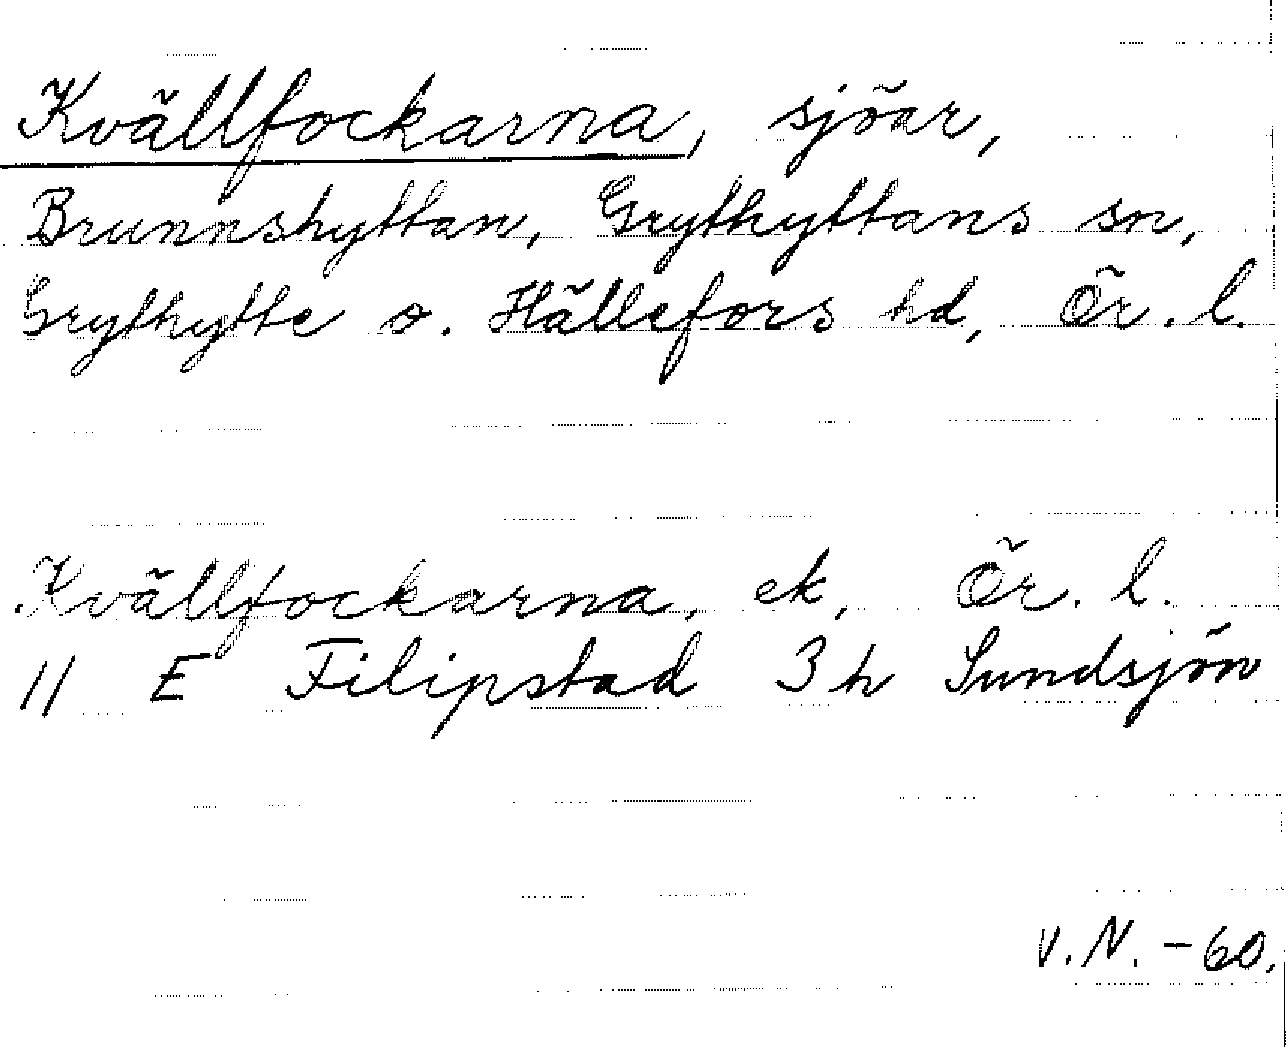 Kvällfockarna, sjöar,
Brunnshyttan, Grythyttans sn,
Grythytte o. Hällefors hd, Ör. l.
Kvällfockarna, ek, Ör. l.
11 E Filipstad 3h Sundsjön
V.N. -60.